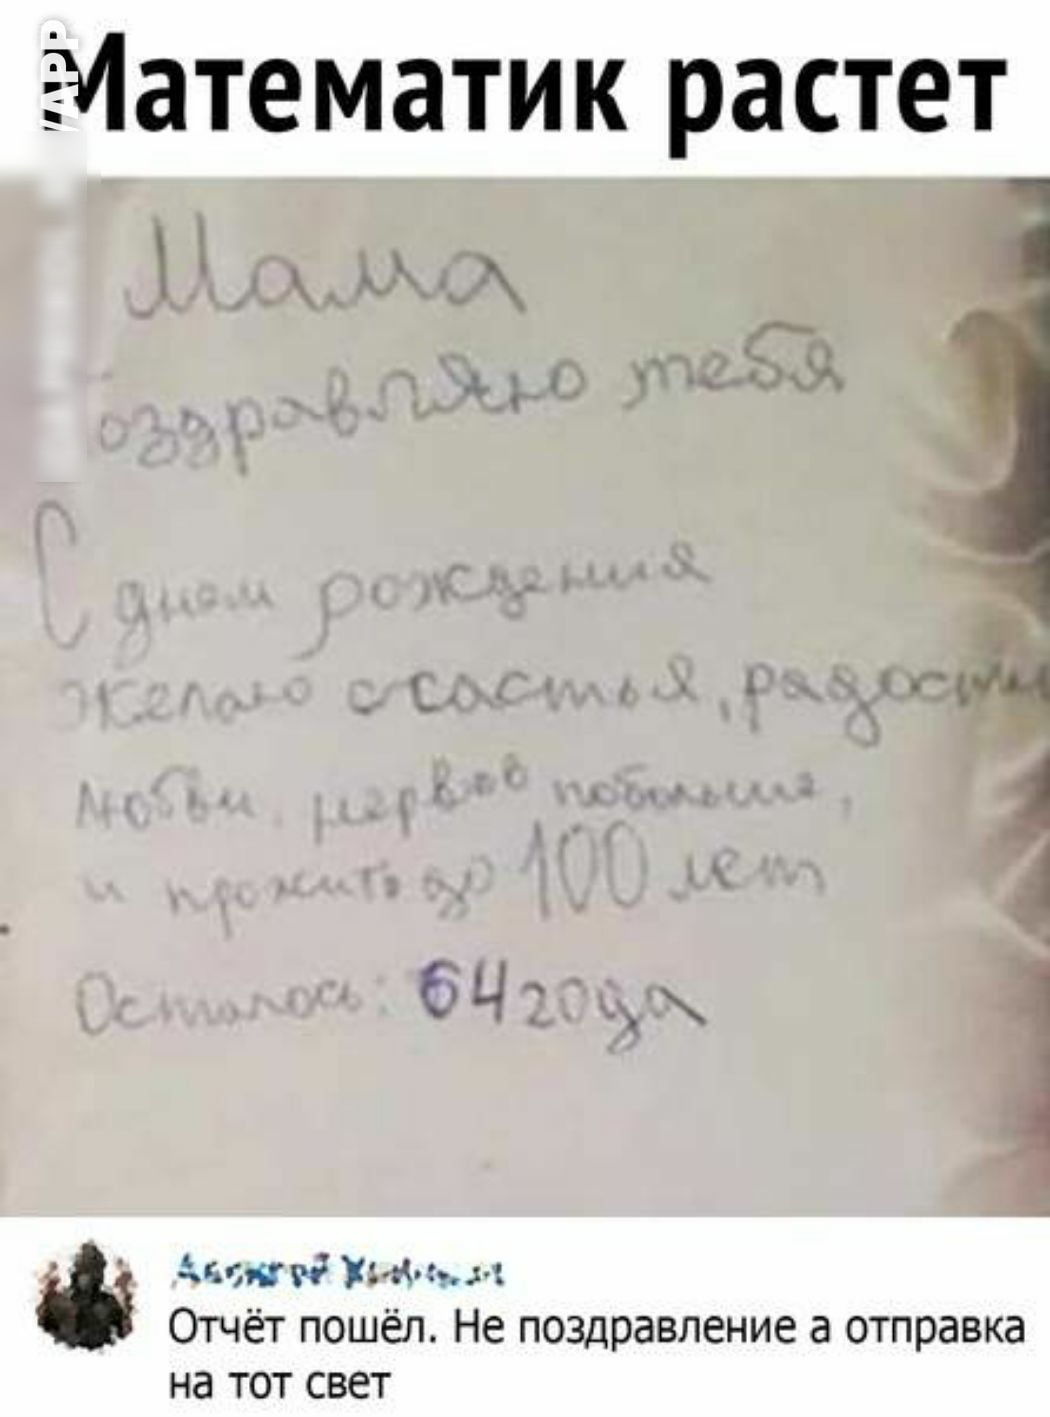 Математик растет
/APP
Мама
оздравляю тебя
С днем рождения
желаю счастья, радости
любви, нервов побольше,
и прожить до 100 лет
Осталось: 64 года
Отчёт пошёл. Не поздравление а отправка
на тот свет